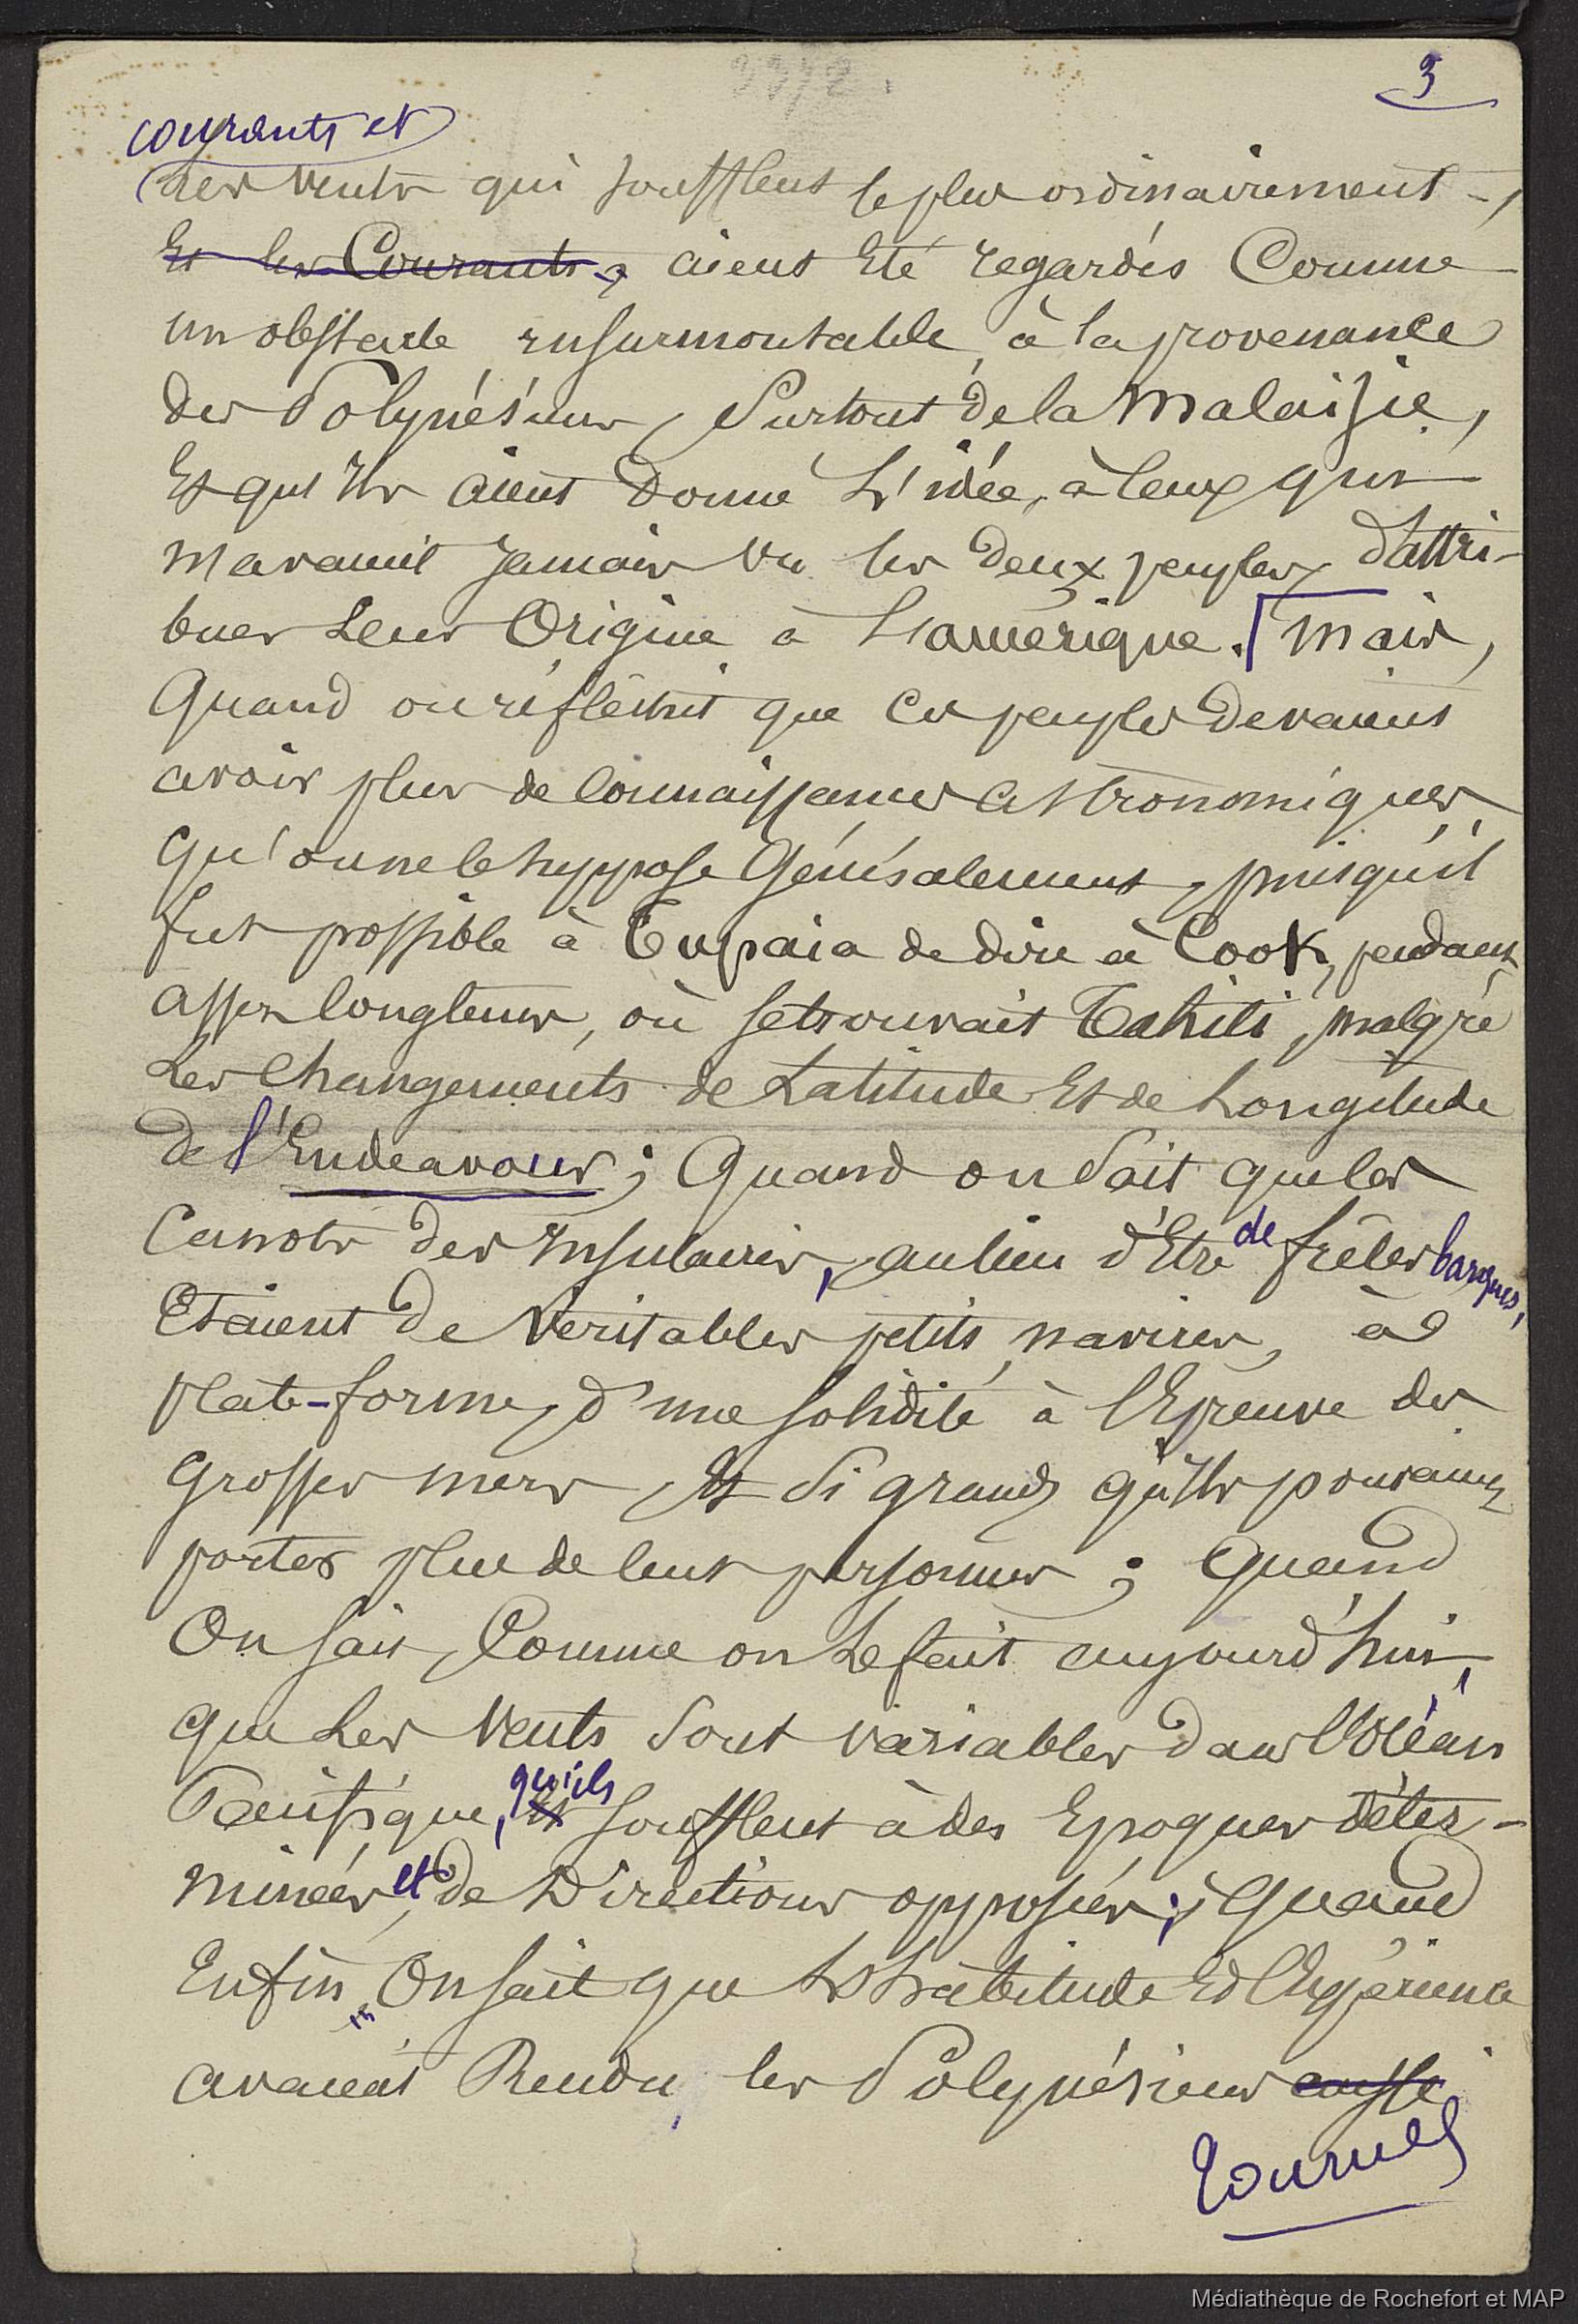 3
courants et
les vents qui soufflent le plus ordinairement,
Et les Courants, aient Eté regardés Comme
un obstacle insurmontable, à la provenance
des Polynésiens, Surtout de la Malaisie,
Et qu'Ils aient Donné L'idée, à Ceux qui
n'avaient Jamais Vu les Deux peuples, D'attri-
buer Leur Origine à L'amérique. Mais,
Quand on réfléchit que Ces peuples Devaient
avoir plus de Connaissances Astronomiques,
qu'on ne le suppose Généralement, puisqu'il
fut possible à Tupaia de dire à Cook, pendant
assez longtems, où se trouvait Tahiti, malgré
Les Changements de Latitude Et de Longitude
de l'Endeavour; Quand on Sait que les
Canots des Insulaires, au lieu d'Etre de frêles barques,
Etaient De Veritables petits navires, à
plate-forme, d'une solidité à l'Epreuve des
Grosses mers, Et Si grands qu'Ils pouvaient
porter plus de Cent personnes; Quand
On sait, Comme on Le fait aujourd'hui,
que Les Vents Sont variables Dans l'Océan
Pacifique, Et qu'ils soufflent à des Epoques déter-
minées et de Directions opposées; Quand
Enfin, On sait que L'habitude Et l'Expérience
avaient Rendu les Polynésiens aussi
Tournez
Médiathèque de Rochefort et MAP